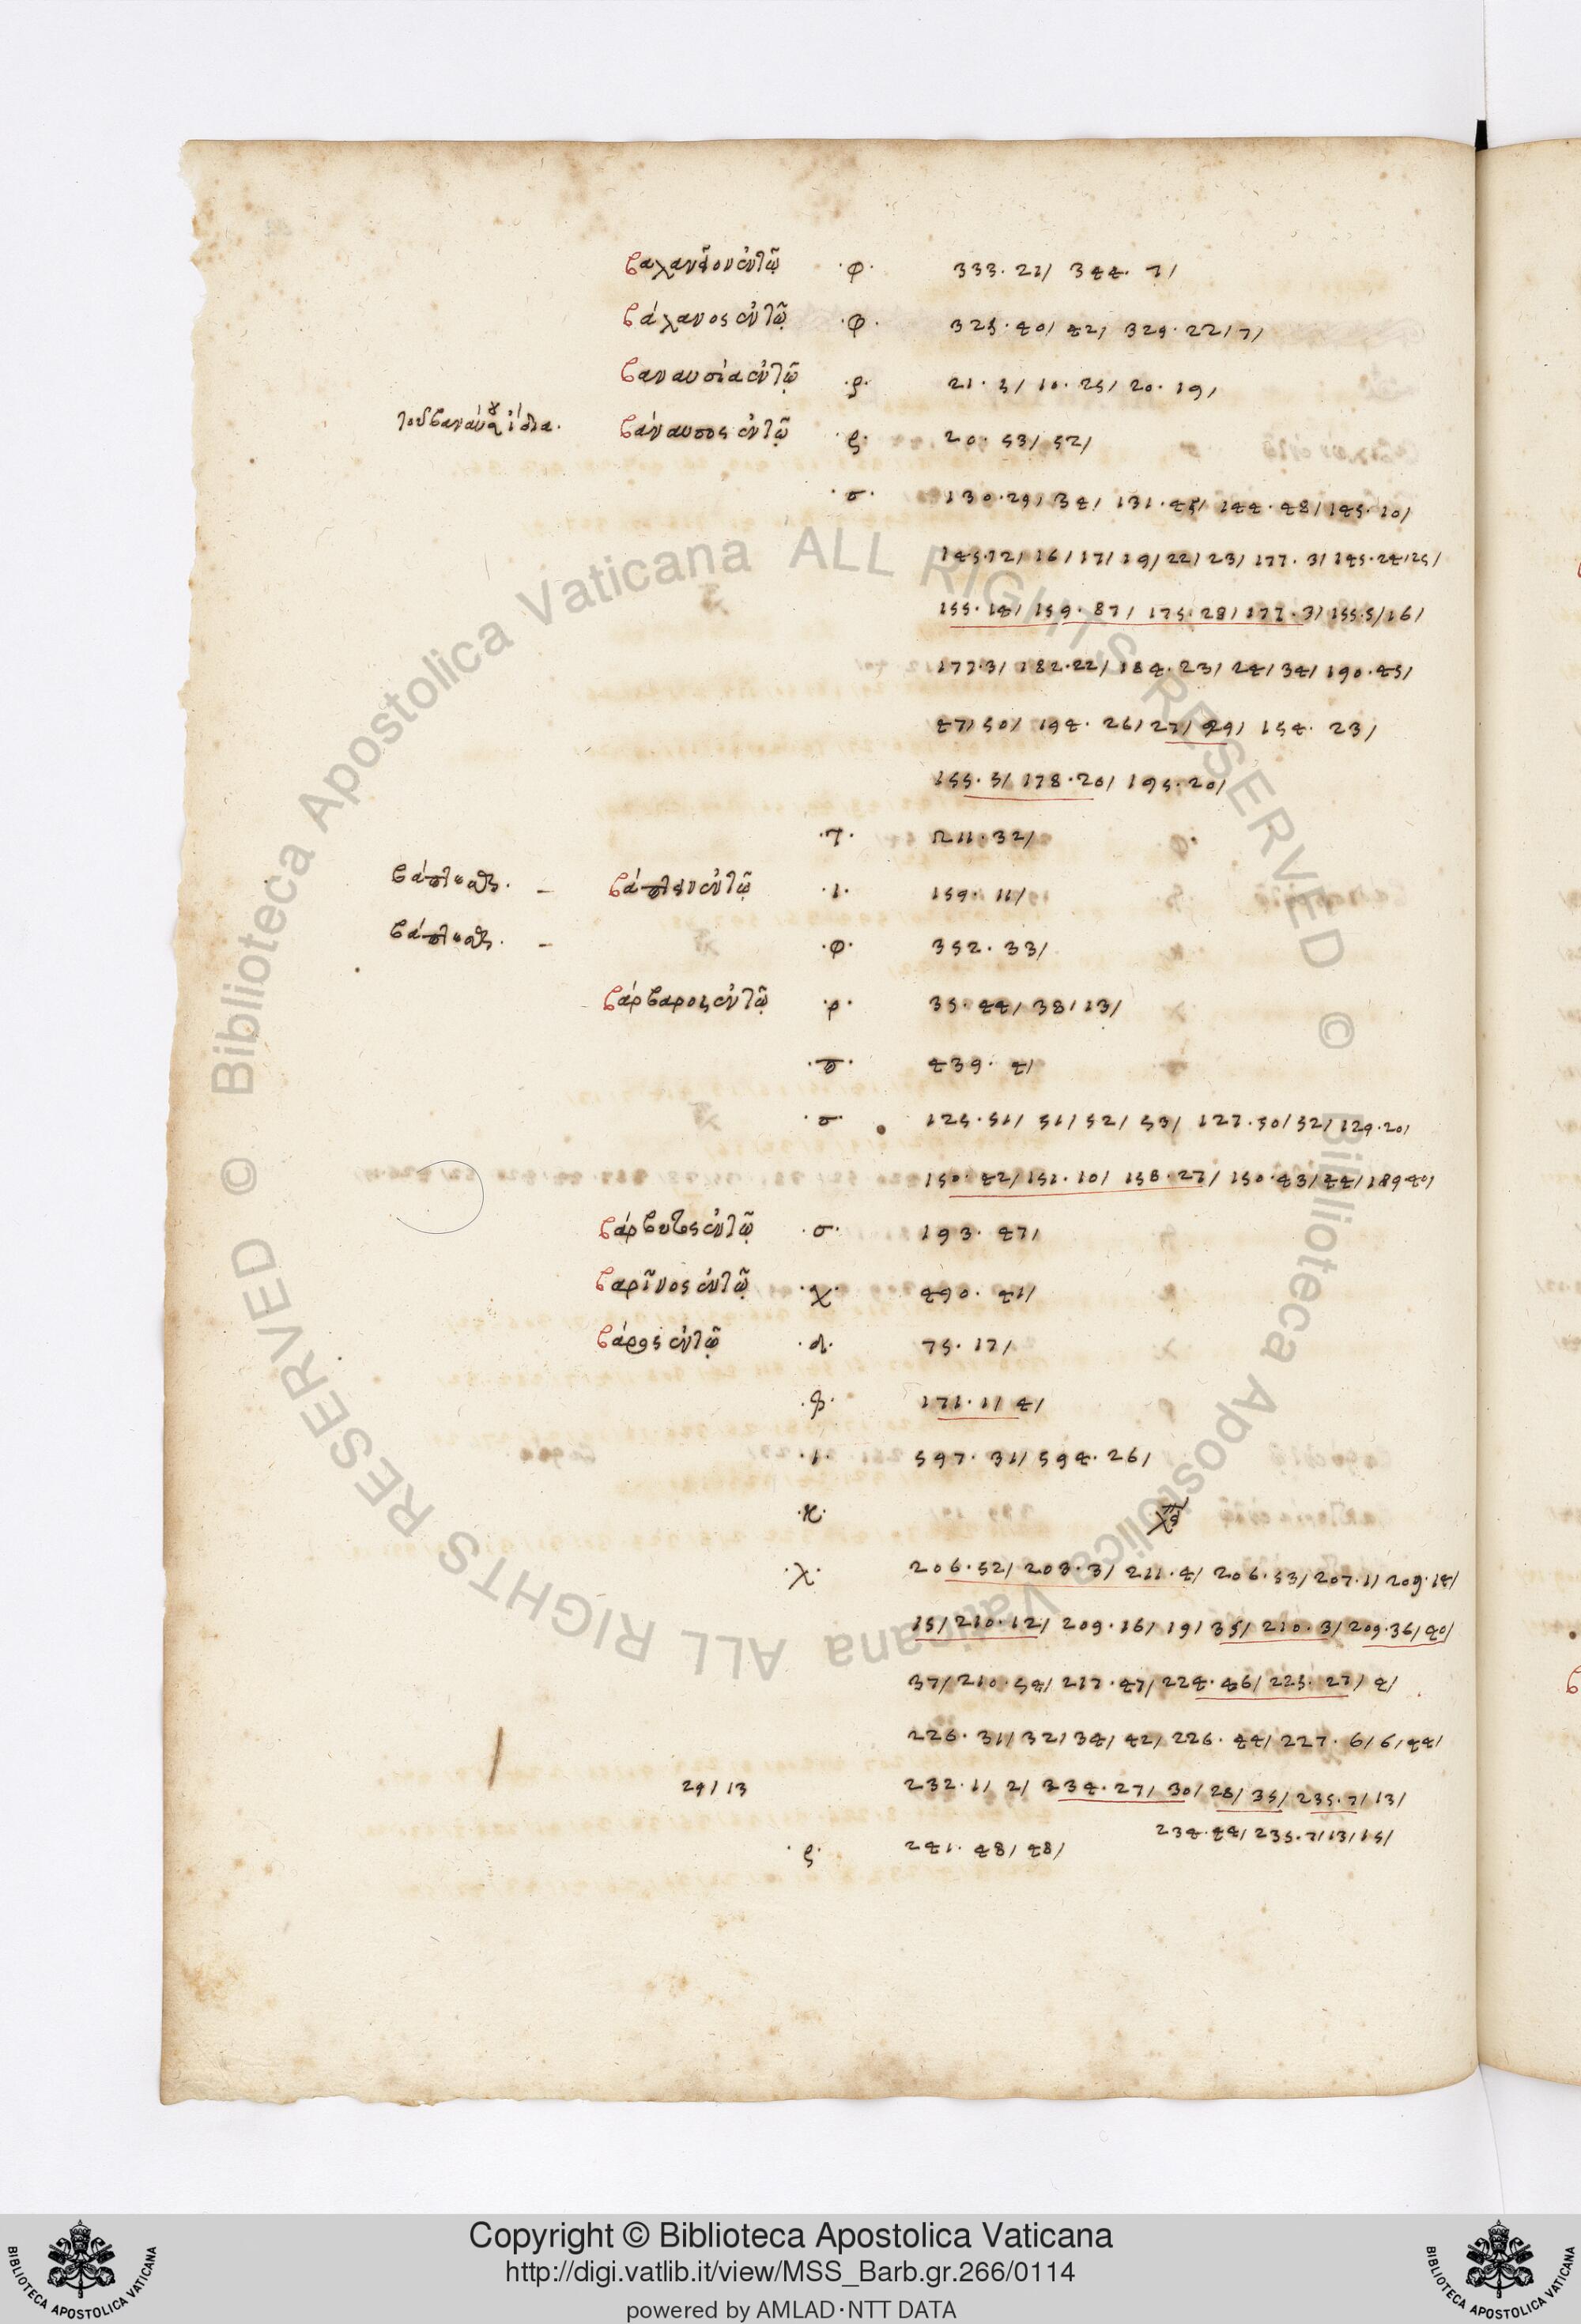 βαλανεῖον ἐν τῷ ·φ· 333·21/ 344·7/
βάλανος ἐν τῷ ·φ· 325·40/ 42/ 329·22/7/
βαναυσία ἐν τῷ ·ρ· 21·5/ 10·25/ 20·19/
τοῦ βαναύσου ἴδια· βάναυσος ἐν τῷ ·ρ· 20·53/ 52/
·σ· 130·29/ 34/ 131·45/ 144·48/ 145·10/
145·12/ 16/ 17/ 19/ 22/ 23/ 177·3/ 145·24/25/
155·14/ 159·87/ 175·28/ 177·3/ 155·5/16/
177·3/ 182·22/ 184·23/ 24/ 34/ 190·45/
47/ 50/ 194·26/ 27/ 29/ 154·23/
155·5/ 178·20/ 195·20/
·τ· 211·32/
βάπτισις· – βάπτειν ἐν τῷ ·ι· 159·11/
βάπτισις· – ·φ· 352·33/
βάρβαρος ἐν τῷ ·ρ· 35·44/ 38/13/
·π· 439·4/
·σ· 125·51/ 51/ 52/ 53/ 127·50/ 52/ 129·20/
150·42/ 151·10/ 158·27/ 150·43/ 44/ 189·40/
βάρβιτος ἐν τῷ ·σ· 193·47/
βαρῖνος ἐν τῷ ·χ· 490·41/
βάρος ἐν τῷ ·α· 75·17/
·β· 171·1/ 4/
·ι· 597·31/ 594·26/
·κ·
·λ· 206·52/ 203·3/ 211·4/ 206·53/ 207·1/ 209·14/
15/ 210·12/ 209·16/ 19/ 35/ 210·3/ 209·36/ 40/
37/ 210·54/ 217·47/ 224·46/ 225·27/ 4/
226·31/ 32/ 34/ 42/ 226·44/ 227·6/ 6/ 44/
29/ 13 232·1/ 2/ 234·27/ 30/ 28/ 35/ 235·7/ 13/
234·44/ 235·7/13/15/
·ρ· 241·48/ 48/
Copyright © Biblioteca Apostolica Vaticana
http://digi.vatlib.it/view/MSS_Barb.gr.266/0114
powered by AMLAD·NTT DATA
© Biblioteca Apostolica Vaticana ALL RIGHTS RESERVED © Biblioteca Apostolica Vaticana ALL RIGHTS RESERVED
BIBLIOTECA APOSTOLICA VATICANA
BIBLIOTECA APOSTOLICA VATICANA